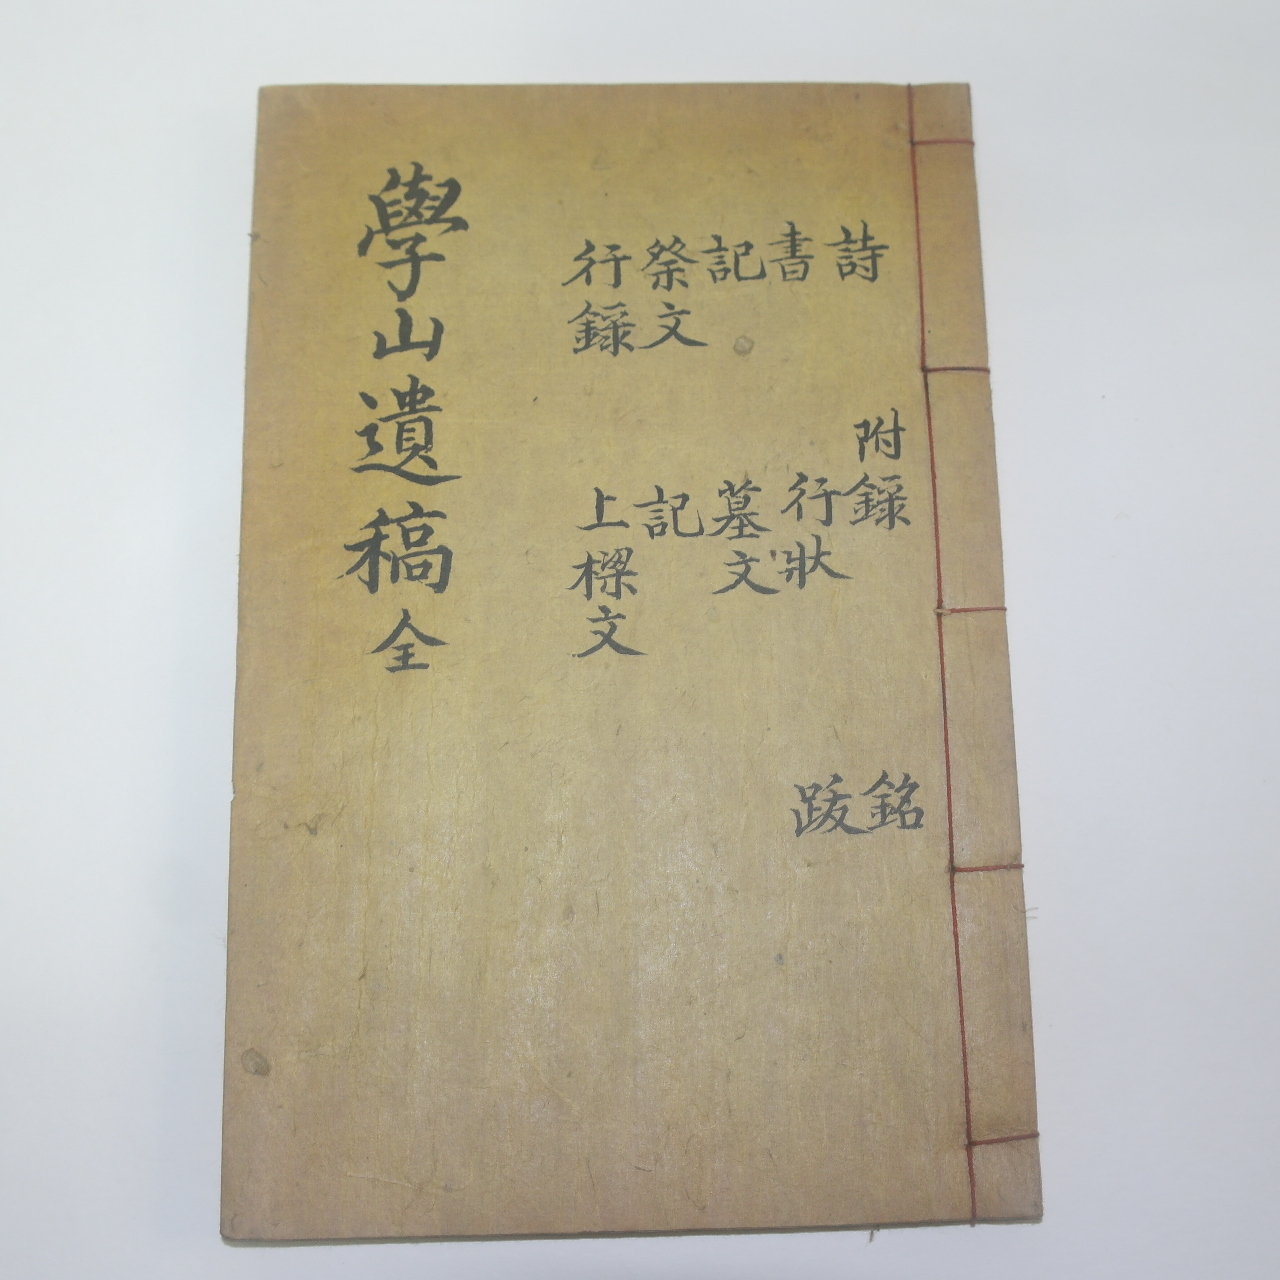 詩
書
記
祭文
行錄
附錄
行狀
墓文
記
上樑文
銘
跋
學山遺稿 全